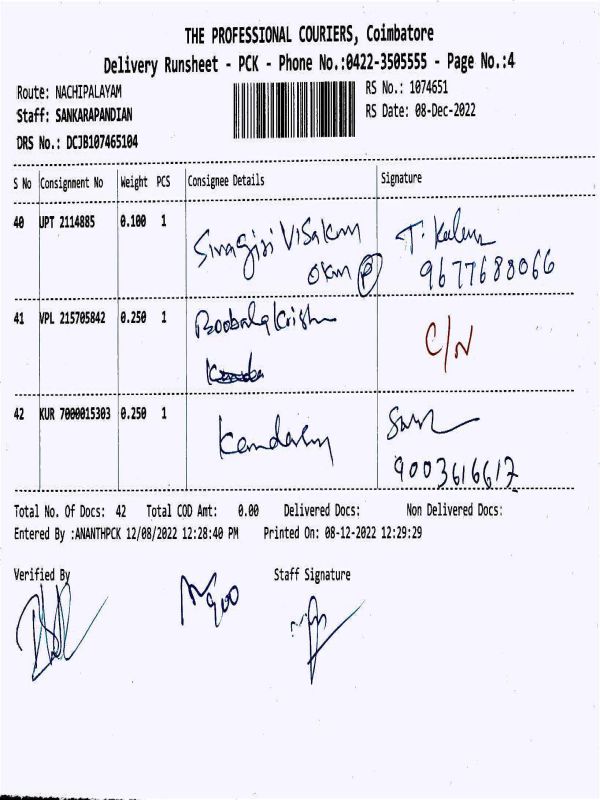 THE PROFESSIONAL COURIERS, Coimbatore
Delivery Runsheet - PCK - Phone No.:0422-3505555 - Page No.:4
Route: NACHIPALAYAM
RS No.: 1074651
Staff: SANKARAPANDIAN
RS Date: 08-Dec-2022
DRS No.: DCJB107465104
S No Consignment No Weight PCS Consignee Details Signature
40 UPT 2114885 0.100 1 Sivagiri Visakam T. Kalem
okm P 9677688066
41 VPL 215705842 0.250 1 Boobala Krishn C/N
42 KUR 7000015303 0.250 1 Kandasamy
9003616617
Total No. Of Docs: 42 Total COD Amt: 0.00 Delivered Docs: Non Delivered Docs:
Entered By :ANANTHPCK 12/08/2022 12:28:40 PM Printed On: 08-12-2022 12:29:29
Verified By Staff Signature